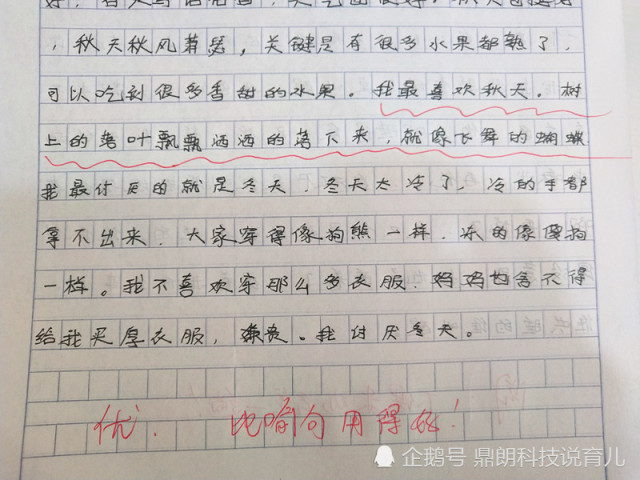 ，秋天秋风萧瑟，关键是有很多水果都熟了，
可以吃到很多香甜的水果。我最喜欢秋天。树
上的落叶飘飘洒洒的落下来，就像飞舞的蝴蝶
我最讨厌的就是冬天，冬天太冷了，冷的手都
拿不出来，大家穿得像狗熊一样，冻的像傻狗
一样。我不喜欢穿那么多衣服，妈妈也舍不得
给我买厚衣服，嫌贵。我讨厌冬天。
优. 比喻句用得好!
企鹅号 鼎朗科技说育儿